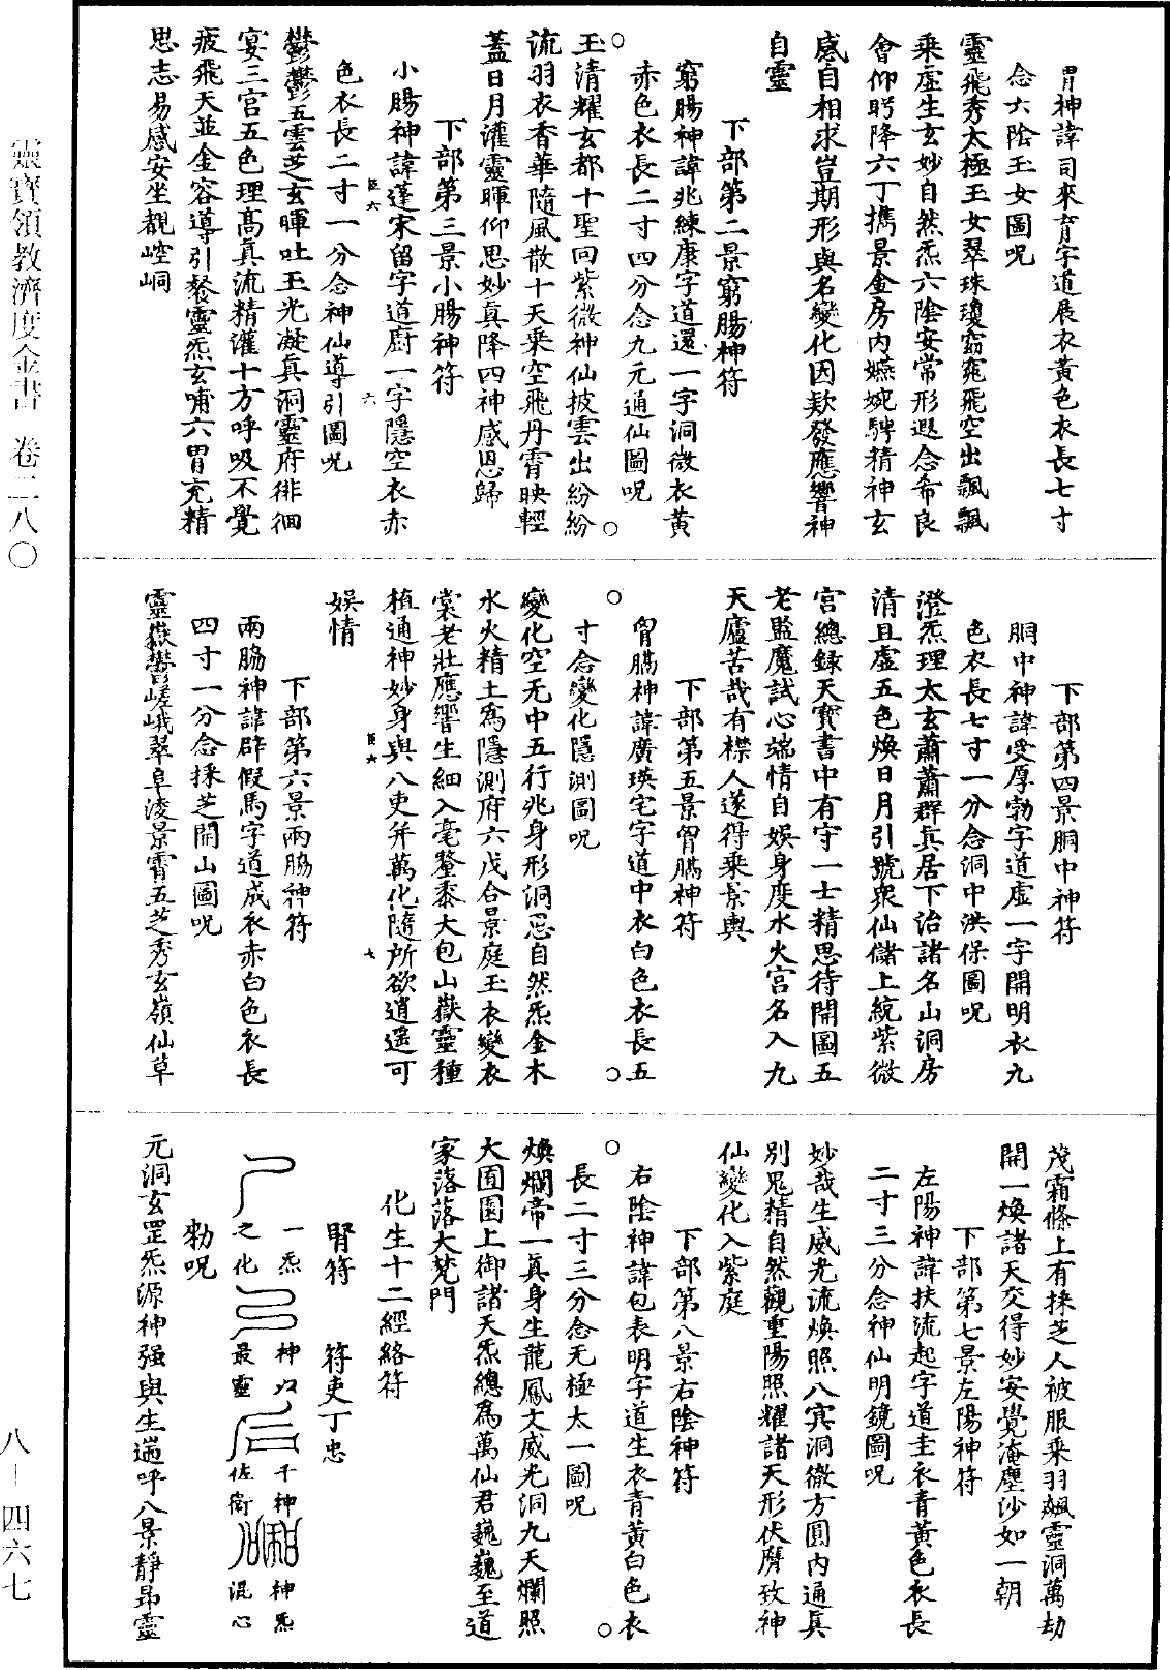 胃神諱司來育字道展衣黃色衣長七寸
念六陰玉女圖呪
靈飛秀太極玉女翠珠瓊窈窕飛空出飄飄
乘虛生玄妙自然炁六陰安常形遐念希良
會仰眄降六丁攜景金房內嬿婉騁精神玄
感自相求豈期形與名變化因欻發應響神
自靈
下部第二景窮腸神符
窮腸神諱兆練康字道還一字洞微衣黃
赤色衣長二寸四分念九元通仙圖呪
玉清耀玄都十聖回紫微神仙披雲出紛紛
流羽衣香華隨風散十天乘空飛丹霄映輕
蓋日月灌靈暉仰思妙真降四神感恩歸
下部第三景小腸神符
小腸神諱蓬宋留字道廚一字隱空衣赤
色衣長二寸一分念神仙導引圖呪
鬱鬱五雲芝玄暉吐玉光凝真洞靈府徘徊
宴三宮五色理高真流精灌十方呼吸不覺
疲飛天並金容導引餐靈炁玄哺六胃充精
思志易感安坐觀崆峒
下部第四景胴中神符
胴中神諱受厚勃字道虛一字開明衣九
色衣長七寸一分念洞中洪保圖呪
澄炁理太玄蕭蕭群真居下治諸名山洞房
清且虛五色煥日月引號衆仙儲上統紫微
宮總録天寶書中有守一士精思待開圖五
老監魔試心端情自娛身度水火宮名入九
天廬苦哉有襟人遂得乘景輿
下部第五景胷膈神符
胷膈神諱廣瑛宅字道中衣白色衣長五
寸念變化隱測圖呪
變化空无中五行兆身形洞忽自然炁金木
水火精土為隱測府六戊合景庭玉衣變衣
裳老壯應響生細入毫釐黍大包山嶽靈種
植通神妙身與八吏并萬化隨所欲逍遥可
娛情
下部第六景兩脇神符
兩脇神諱辟假馬字道成衣赤白色衣長
四寸一分念採芝開山圖呪
靈嶽鬱嵯峨翠阜淩景霄五芝秀玄嶺仙草
茂霜條上有採芝人被服乘羽飈靈洞萬劫
開一煥諸天交得妙安覺淹塵沙如一朝
下部第七景左陽神符
左陽神諱扶流起字道圭衣青黃色衣長
二寸三分念神仙明鏡圖呪
妙哉生威光流煥照八冥洞徹方圓內通真
別鬼精自然觀重陽照耀諸天形伏膺致神
仙變化入紫庭
下部第八景右陰神符
右陰神諱包表明字道生衣青黃白色衣
長二寸三分念无極太一圖呪
煥爛帝一真身生龍鳳文威光洞九天爛照
大囿園上御諸天炁總為萬仙君巍巍至道
家落落大梵門
化生十二經絡符
腎符　符吏丁忠
一炁　神　千神　神炁
之化　最靈　佐衛　混心
勑呪
元洞玄罡炁源神強與生遄呼八景靜昂靈
靈寶領教濟度金書　卷二八〇
八－四六七